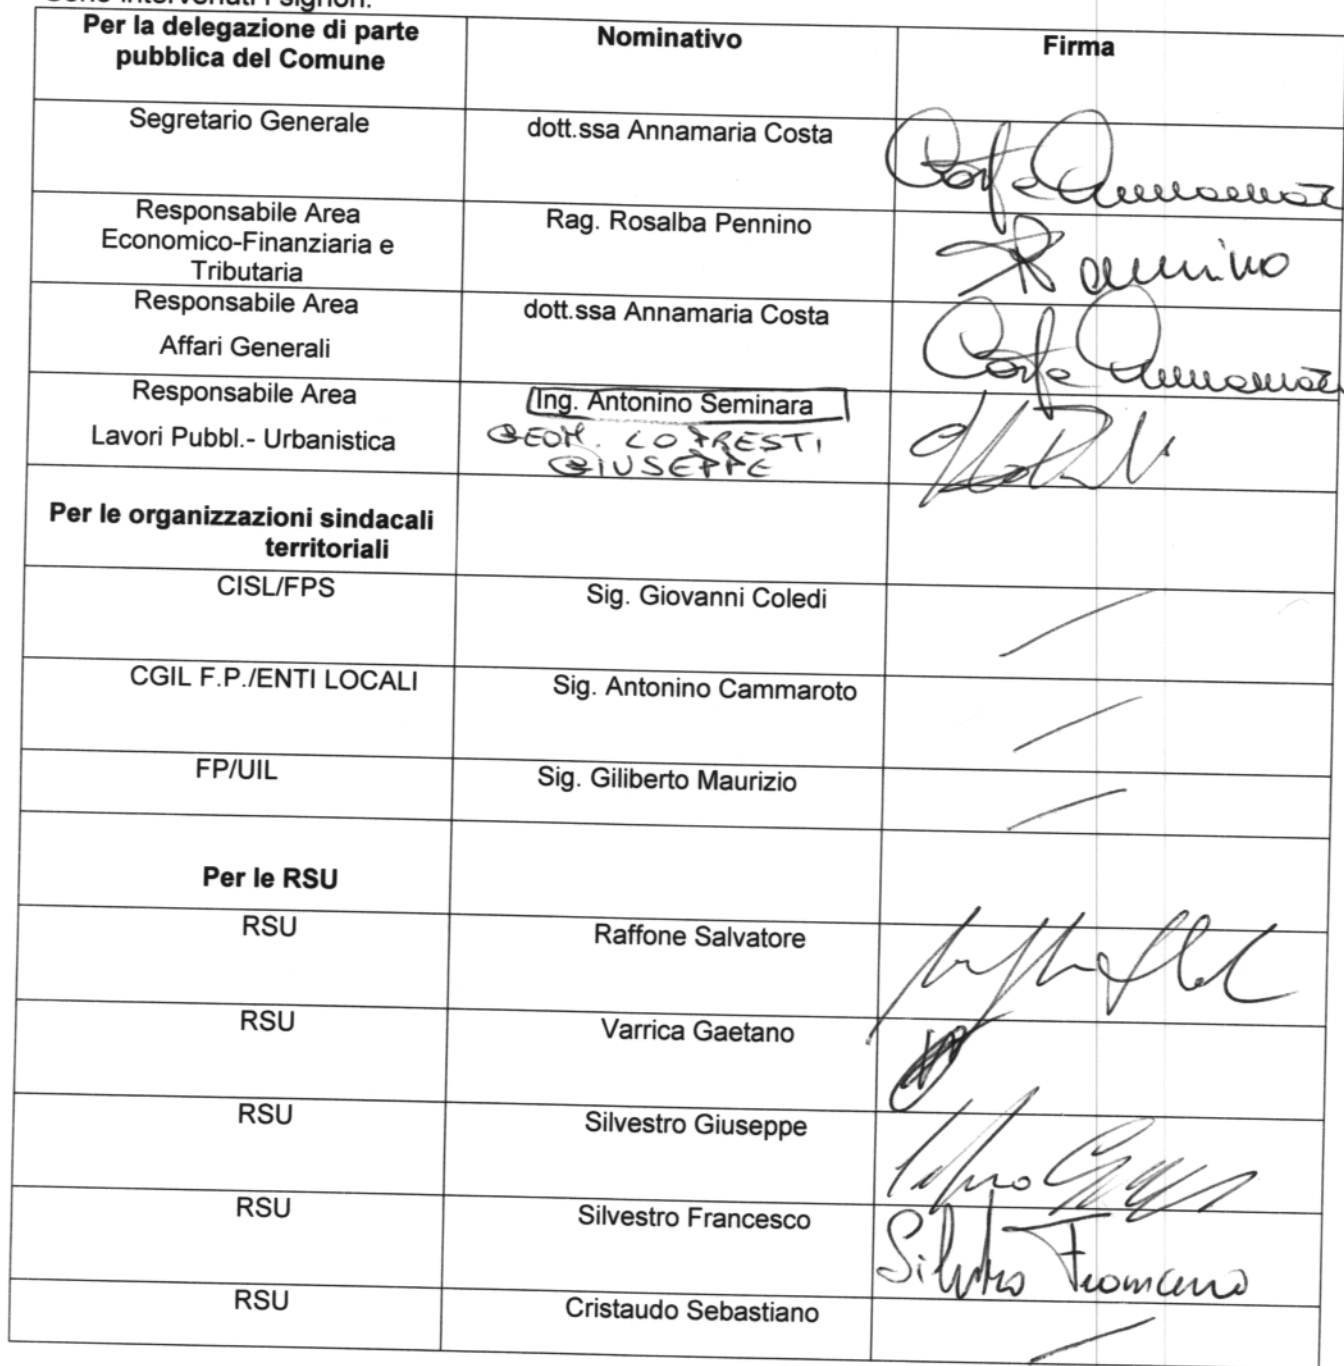 Sono intervenuti i signori:
Per la delegazione di parte
pubblica del Comune
Nominativo
Firma
Segretario Generale
dott.ssa Annamaria Costa
Costa Annamaria
Responsabile Area
Economico-Finanziaria e
Tributaria
Rag. Rosalba Pennino
R Pennino
Responsabile Area
Affari Generali
dott.ssa Annamaria Costa
Costa Annamaria
Responsabile Area
Lavori Pubbl.- Urbanistica
Ing. Antonino Seminara
GEOM. LO PRESTI
GIUSEPPE
Per le organizzazioni sindacali
territoriali
CISL/FPS
Sig. Giovanni Coledi
CGIL F.P./ENTI LOCALI
Sig. Antonino Cammaroto
FP/UIL
Sig. Giliberto Maurizio
Per le RSU
RSU
Raffone Salvatore
RSU
Varrica Gaetano
RSU
Silvestro Giuseppe
RSU
Silvestro Francesco
Silvestro Francesco
RSU
Cristaudo Sebastiano